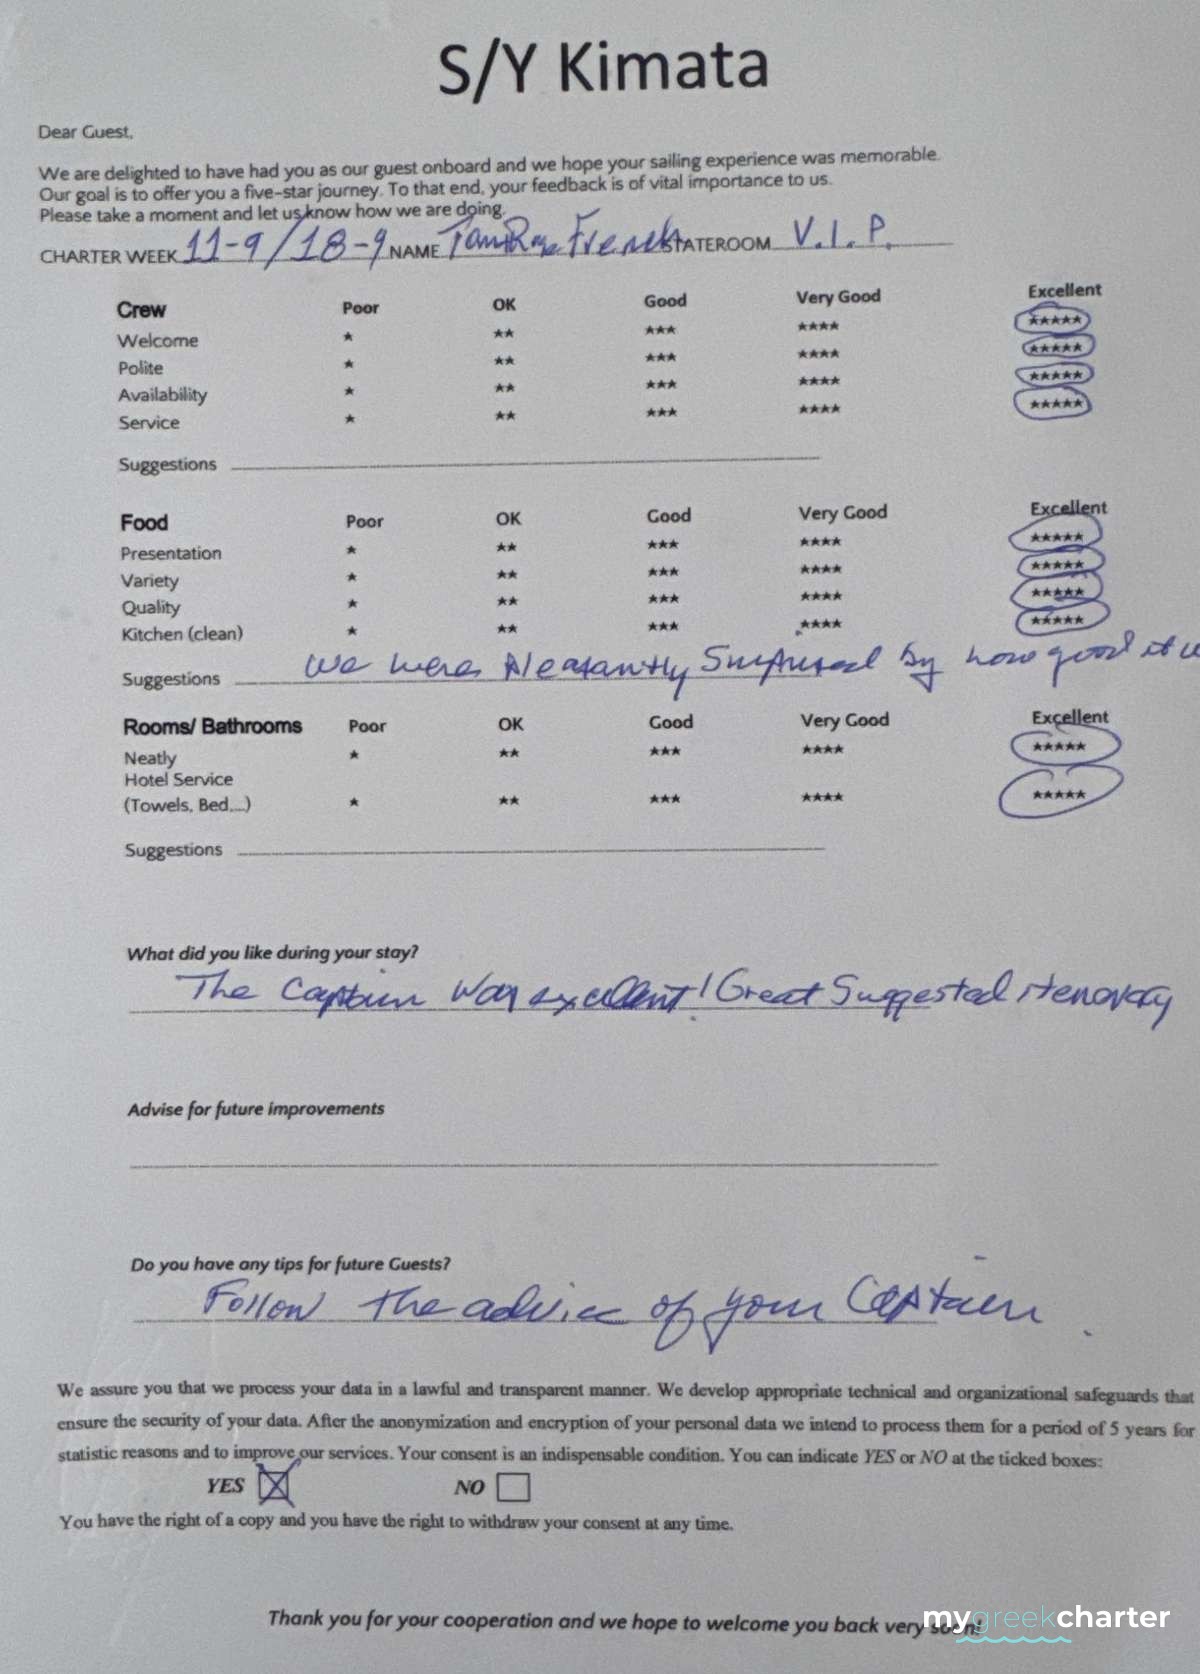 S/Y Kimata
Dear Guest,
We are delighted to have had you as our guest onboard and we hope your sailing experience was memorable.
Our goal is to offer you a five-star journey. To that end, your feedback is of vital importance to us.
Please take a moment and let us know how we are doing.
CHARTER WEEK 11-9/18-9 NAME French STATEROOM V.I.P.
Crew Poor OK Good Very Good Excellent
Welcome * ** *** **** *****
Polite * ** *** **** *****
Availability * ** *** **** *****
Service * ** *** **** *****
Suggestions
Food Poor OK Good Very Good Excellent
Presentation * ** *** **** *****
Variety * ** *** **** *****
Quality * ** *** **** *****
Kitchen (clean) * ** *** **** *****
Suggestions We were pleasantly surprised by how good it
Rooms/ Bathrooms Poor OK Good Very Good Excellent
Neatly * ** *** **** *****
Hotel Service
(Towels, Bed,...) * ** *** **** *****
Suggestions
What did you like during your stay?
The Captain was excellent! Great Suggested itenovary
Advise for future improvements
Do you have any tips for future Guests?
Follow the advice of your Captain.
We assure you that we process your data in a lawful and transparent manner. We develop appropriate technical and organizational safeguards that
ensure the security of your data. After the anonymization and encryption of your personal data we intend to process them for a period of 5 years for
statistic reasons and to improve our services. Your consent is an indispensable condition. You can indicate YES or NO at the ticked boxes:
YES NO
You have the right of a copy and you have the right to withdraw your consent at any time.
Thank you for your cooperation and we hope to welcome you back very soon!
mygreekcharter